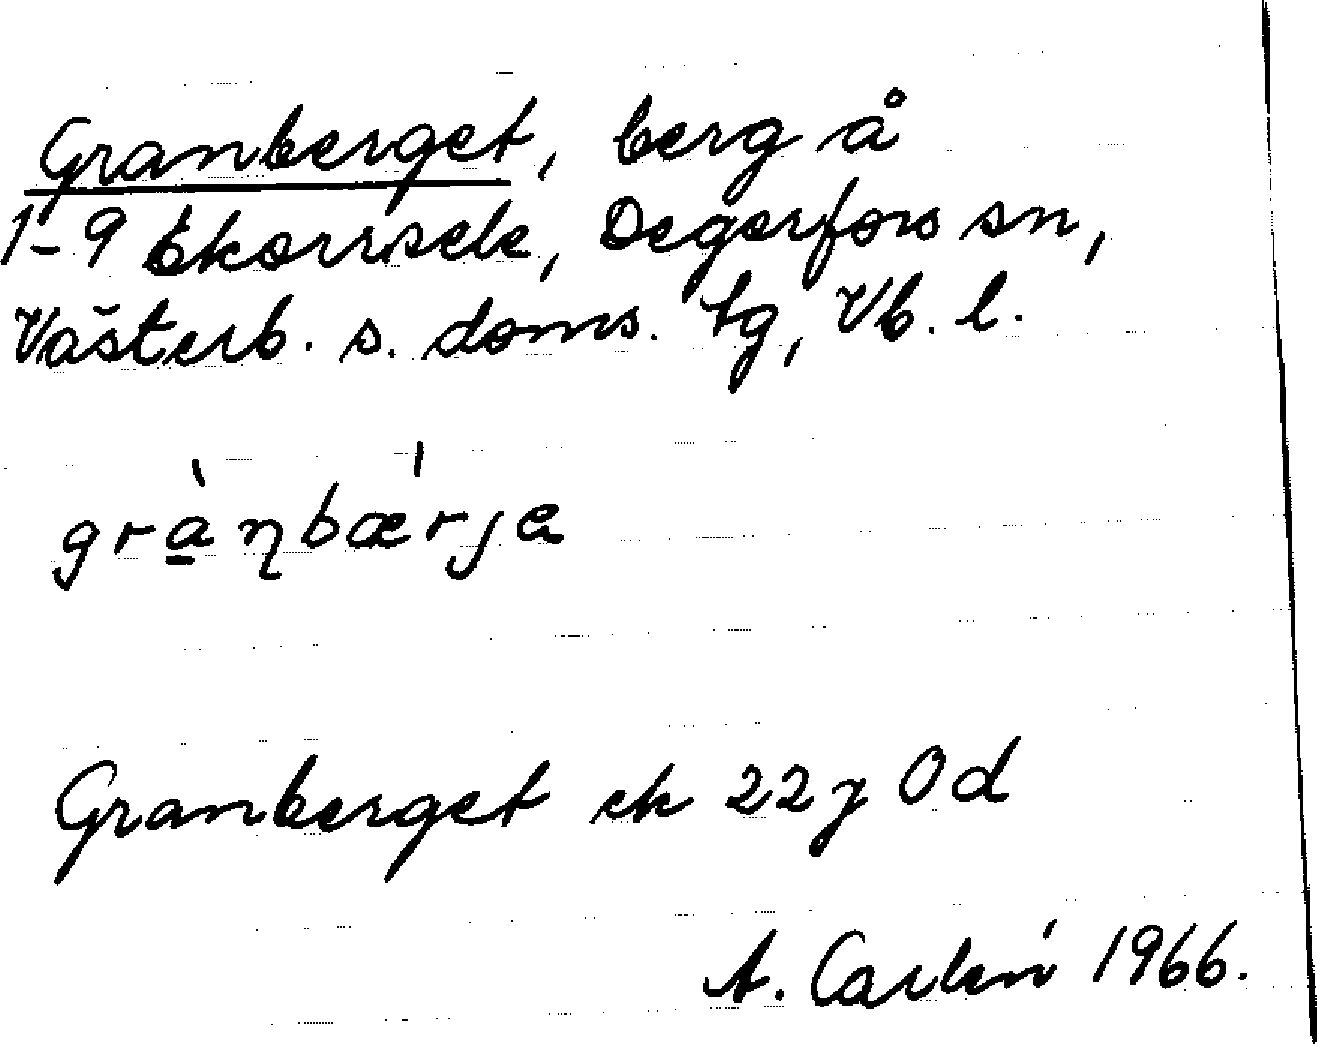 Granberget, berg å
1-9 Ekorrsele, Degerfors sn,
Västerb. s. doms. tg, Vb. l.
gràn̡bærjɐ
Granberget ek 22 j 0 d
A. Carlén 1966.